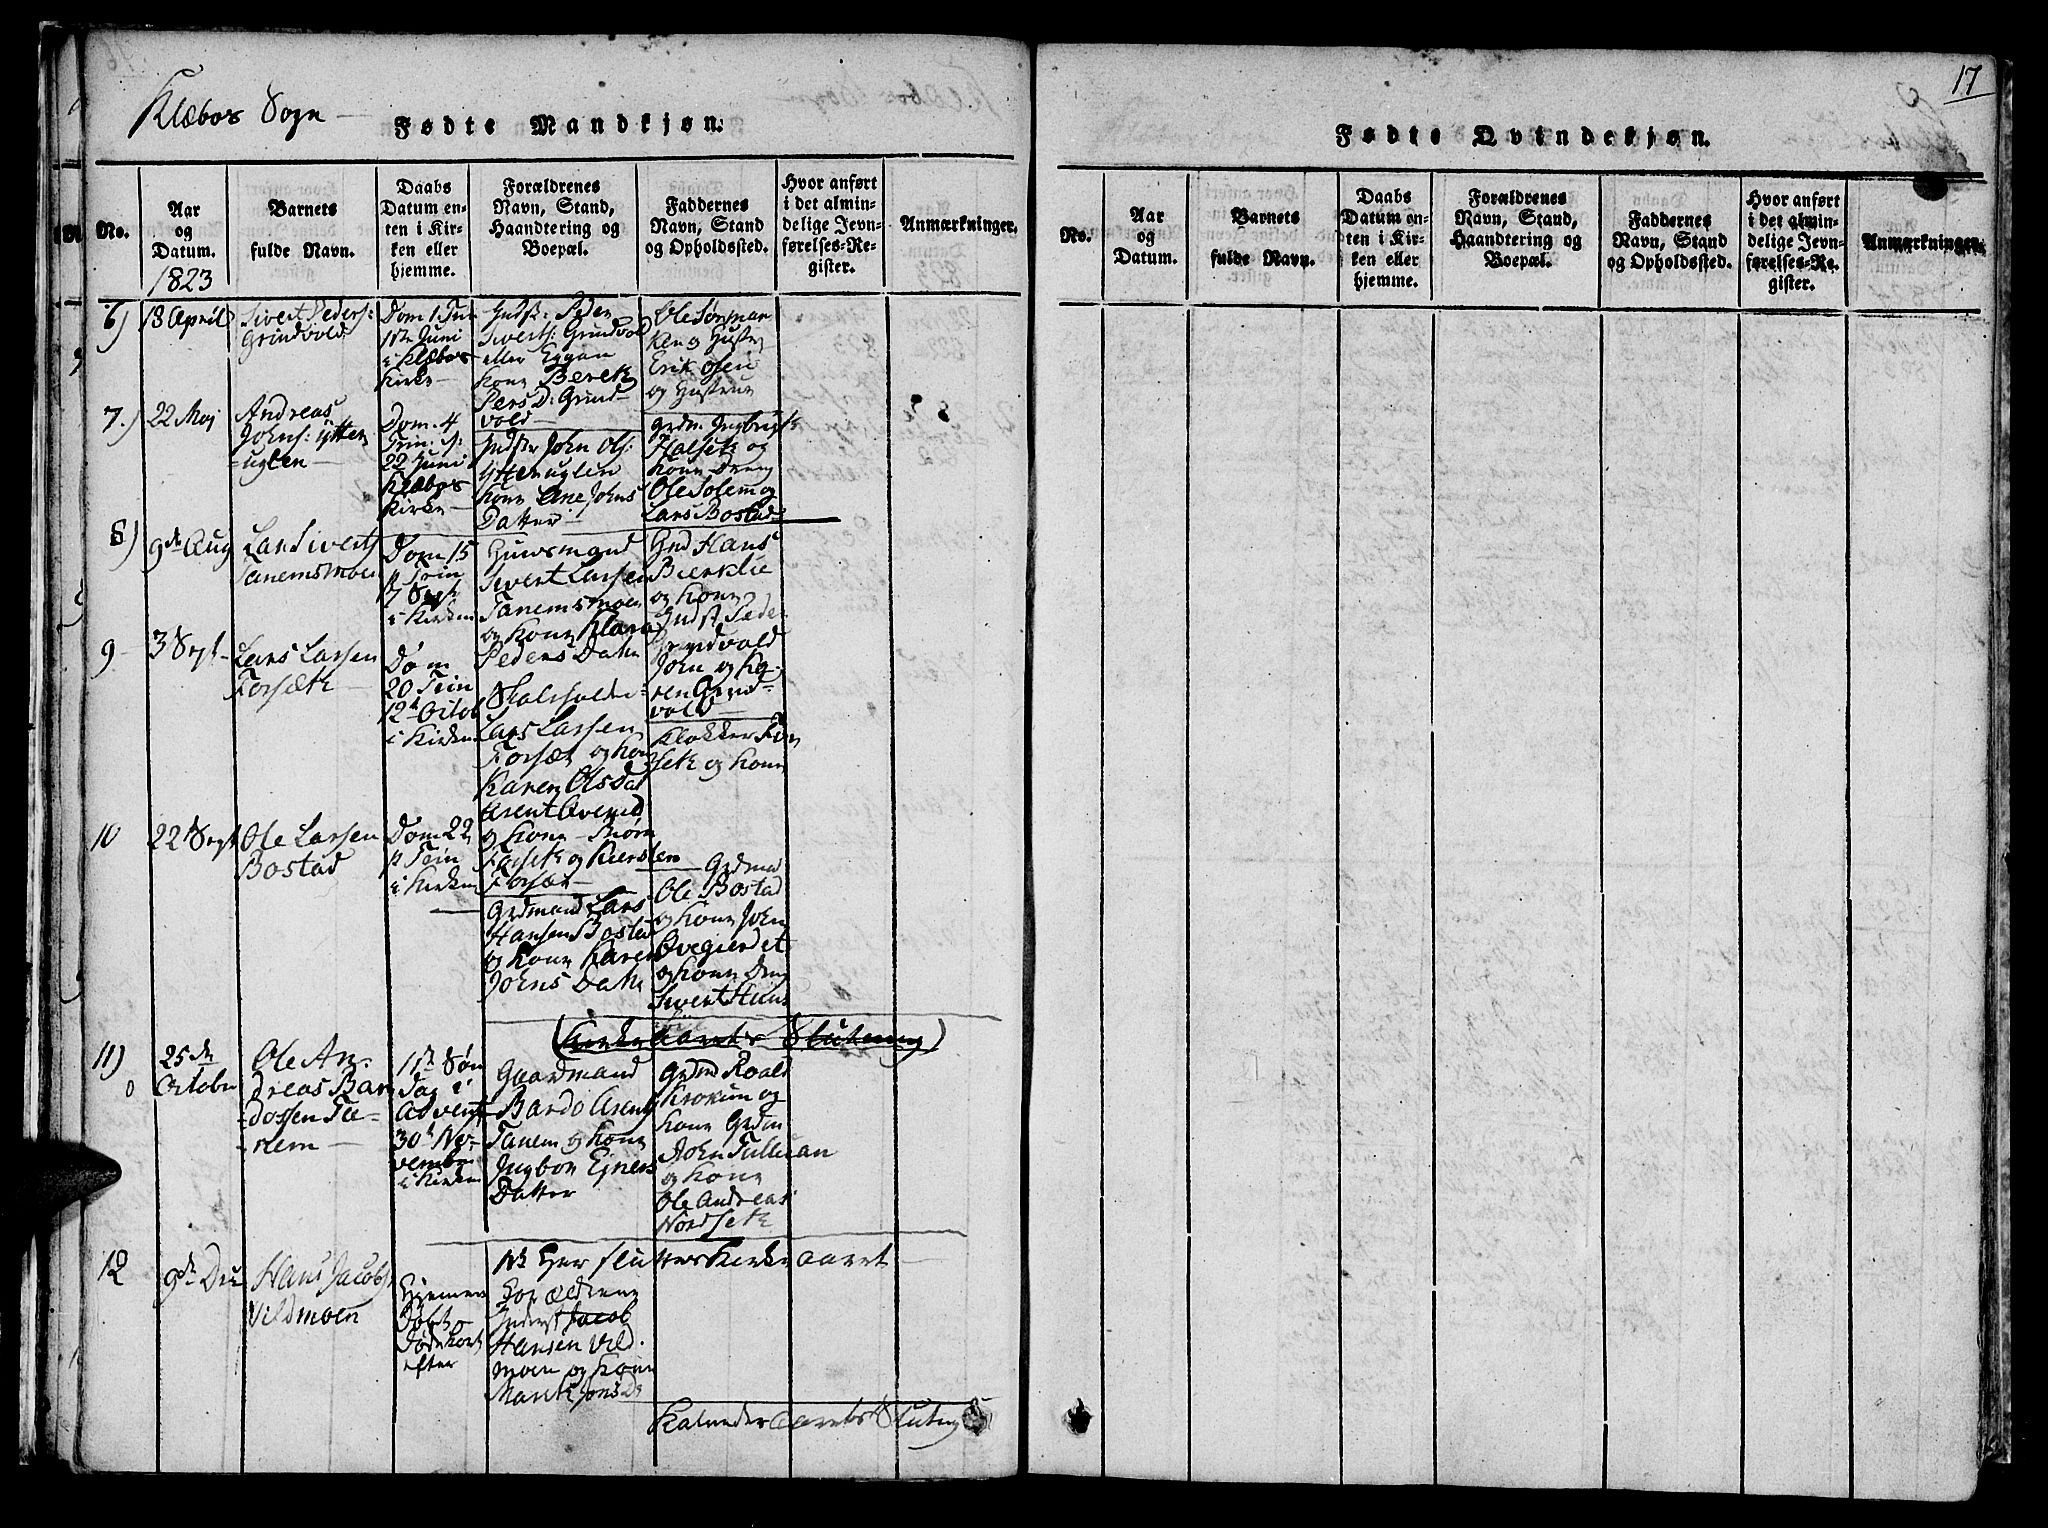 Klæboe Sogn
Fødte Mandkjøn.
No.
Aar
og
Datum.
1823
Barnets
fulde Navn.
Daabs
Datum en-
ten i Kir-
ken eller
hjemme.
Forældrenes
Navn, Stand,
Haandtering og
Boepæl.
Faddernes
Navn, Stand
og Opholdssted.
Hvor anført
i det almin-
delige Jevn-
førelses-Re-
gister.
Anmærkninger.
6)
18 April
Sivert Peders:
Grindvold
Dom 1 Trin
1ste Juni
i Klæboe
Kirke
Indst: Peder
Siverts: Grindvold
eller Eggan
Kone Bereth
Pers D: Grind-
vold
Ole Sørman
Erik
og Hustrue
7.)
22 Maj
Andreas
Johns: ytter
=uglen
Dom. 4
Trin.
22 Juni
Klæboe
Kirke
Indster John Ols:
Ytteruglen
Kone Ane Johns
Datter
Grdm. Ingbrigt
Halseth og
Kone Dreng
Ole Solem og
Lars Bostad
8)
9de Aug
Lars Sivertss
Tanemsmoen
Dom 15
p Trin
7 Sept
i Kirken
Huusmand
Sivert Larsen
Tanemsmoen
og Kone Klara
Peders Datte
Grd Hans
Bierklie
og Kone
Indst Peder
Grindvold
John og Ka-
ren Grind-
vold
9
3 Sept
Lars Larsen
Forsæth
Dom
20 Trin
12te Octob
i Kirken
Lars Larsen
Forsæt og Kone
Karen Olsdat
Arent
og Kone
Forseth og Kiersten
Forsæt
Klokker For
seth og Kone
10
22de Sept
Ole Larsen
Bostad
Dom 22
p Trin
i Kirken
Grdmand Lars
Hansen Bostad
og Kone Karen
Johns Datte
Grdmd
Ole Bostad
og Kone John
Øvegierdet
og Kone Dreng
Sivert
(Kirke aarets Slutning)
11)
25de
Octobr
Ole An-
dreas Bar
dossen Ta-
nem
1ste Søn
dag i
Advent
30te No-
vember
i Kirken
Gaardmand
Bardo Arents
Tanem og Kone
Ingbor Ejners
Datter
Grdmd Roald
Krokum og
Kone Grdm
John Tulluan
og Kone
Ole Andreas
Nordseth
12
9de Dec
Hans Jacobs:
Vildmoen
Hjemme
Døbt o
Døde kort
efter
NB Her slutter Kirke aaret
Forældrene
Inderst Jacob
Hansen Vild-
moen og Kone
Mareth Jons D:
Kalender aarets Slutng
17
Fødte Qvindekjøn.
No.
Aar
og
Datum.
Barnets
fulde Navn.
Daabs
Datum en-
ten i Kir-
ken eller
hjemme.
Forældrenes
Navn, Stand,
Haandtering og
Boepæl.
Faddernes
Navn, Stand
og Opholdssted.
Hvor anført
i det almin-
delige Jevn-
førelses-Re-
gister.
Anmærkninger.